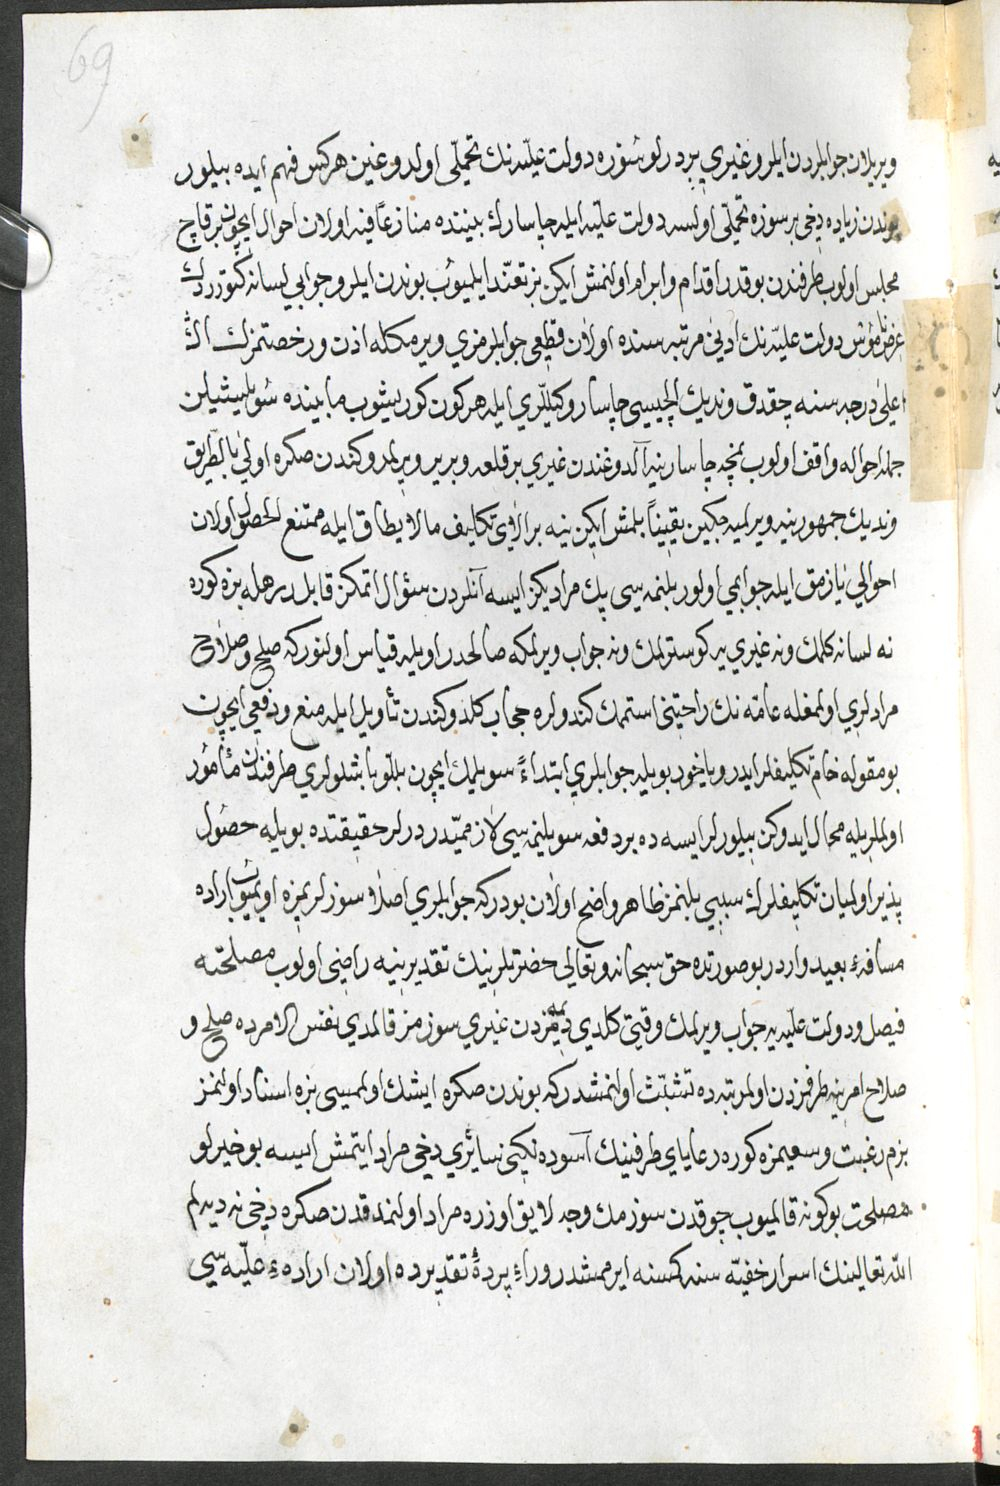 69
ويريلان جوابلردن ايلرو غيري بر درلو سوزه دولت عليّه نك تحمّلى اولدوغين هركس فهم ايده بيلور
بوندن زياده دخى بر سوزه تحمّلى اولسه دولت عليّه ايله چاسارك بيننده منازعاً فيه اولان احوال ايچون بر قاچ
مجلس اولوب طرفندن بو قدر اقدام و ابرام اولنمش ايكن بز تعنّد ايلميوب بوندن ايلرو جوابى لسانه كتورردك
عرض ناموس دولت عليّه نك ادنى مرتبه سنده اولان قطعى جوابلرمزي ويرمكله اذن و رخصتمزك الڭ
اعلى درجه سنه چقدق ونديك ايلچيسى چاسار وكيللري ايله هر كون كوريشوب مابينده سويلشيلن
جمله احواله واقف اولوب نمچه چاسارينه آلدوغندن غيري بر قلعه و بر ير ويرلمدوكندن صكره اولى بالطّريق
ونديك جمهورينه ويرلميه جكين يقيناً بلمش ايكن ينه بر آلاى تكليف ما لا يطاق ايله ممتنع الحصول اولان
احوالي يازمق ايله جوابمي اولور بلنمه سى پك مراديكز ايسه آنلردن سؤال اتمكز قابلدر هله بزه كوره
نه لسانه كلمك و نه غيري يه كوسترلمك و نه جواب ويرلمكه صالحدر اويله قياس اولنوركه صلح و صلاح
مرادلري اولمغله عامّه نك راحتنى استمك كندولره حجاب كلدوكندن تأويل ايله منع و دفعى ايچون
بو مقوله خام تكليفلر ايدر و ياخود بويله جوابلري ابتداءً سويلمك ايچون بللو باشلولري طرفندن مأمور
اولملريله محال ايدوكن بيلورلر ايسه ده بر دفعه سويلنمه سى لازميّدر درلر حقيقتده بويله حصول
پذير اولميان تكليفلرك سببي بلنمز ظاهر و اضح اولان بودركه جوابلري اصلا سوزلريمزه اويميوب اراده
مسافهٔ بعيد واردر بو صورتده حق سبحانه و تعالى حضرتلرينك تقديرينه راضى اولوب مصلحته
فيصل و دولت عليّه يه جواب ويرلمك وقتى كلدي ديمه مزدن غيري سوزمز قالمدي نفس الامرده صلح و
صلاح امرينه طرفزدن اولمرتبه ده تشبّث اولنمشدركه بوندن صكره ايشك اولميسى بزه اسناد اولنمز
بزم رغبت و سعيمزه كوره رعاياي طرفينك آسوده نكينى سائري دخى مراد ايتمش ايسه بو خيرلو
مصلحت بو كونه قالميوب چوقدن سوزمك وجه لايق اوزره مراد اولنمدقدن صكره دخى نه ديه لم
اللّه تعالينك اسرار خفيّه سنه كمسنه ايرممشدر وراء پردهٔ تقديرده اولان ارادهٔ عليّه سى